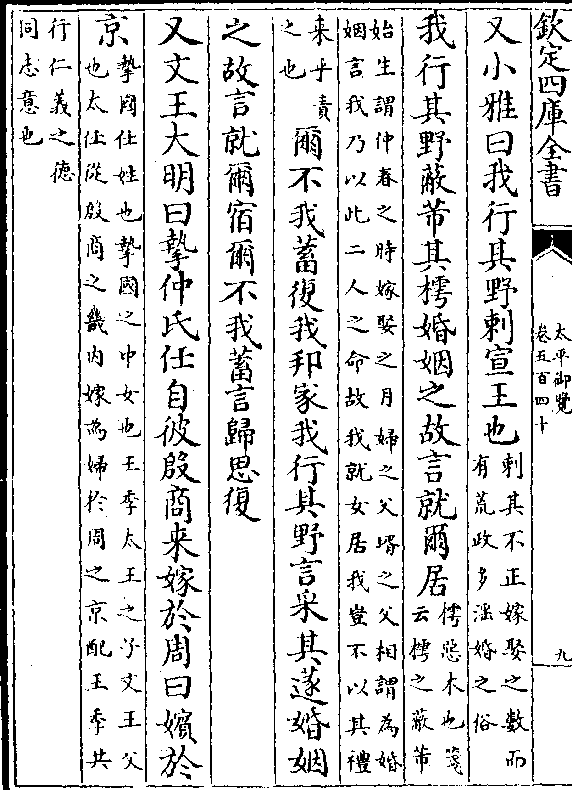 欽定四庫全書
太平御覽
卷五百四十
九
又小雅曰我行其野刺宣王也
刺其不正嫁娶之數而
有荒政多淫婚之俗
我行其野蔽芾其樗婚姻之故言就爾居
樗惡木也箋
云樗之蔽芾
始生謂仲春之時嫁娶之月婦之父壻之父相謂為婚
姻言我乃以此二人之命故我就女居我豈不以其禮
来乎責
之也
爾不我蓄復我邦家我行其野言采其蓫婚姻
之故言就爾宿爾不我蓄言歸思復
又文王大明曰摯仲氏任自彼殷商来嫁於周曰嬪於
京
摯國任姓也摯國之中女也王季太王之子文王父
也太任從殷商之畿内嫁為婦於周之京配王季共
行仁義之德
同志意也